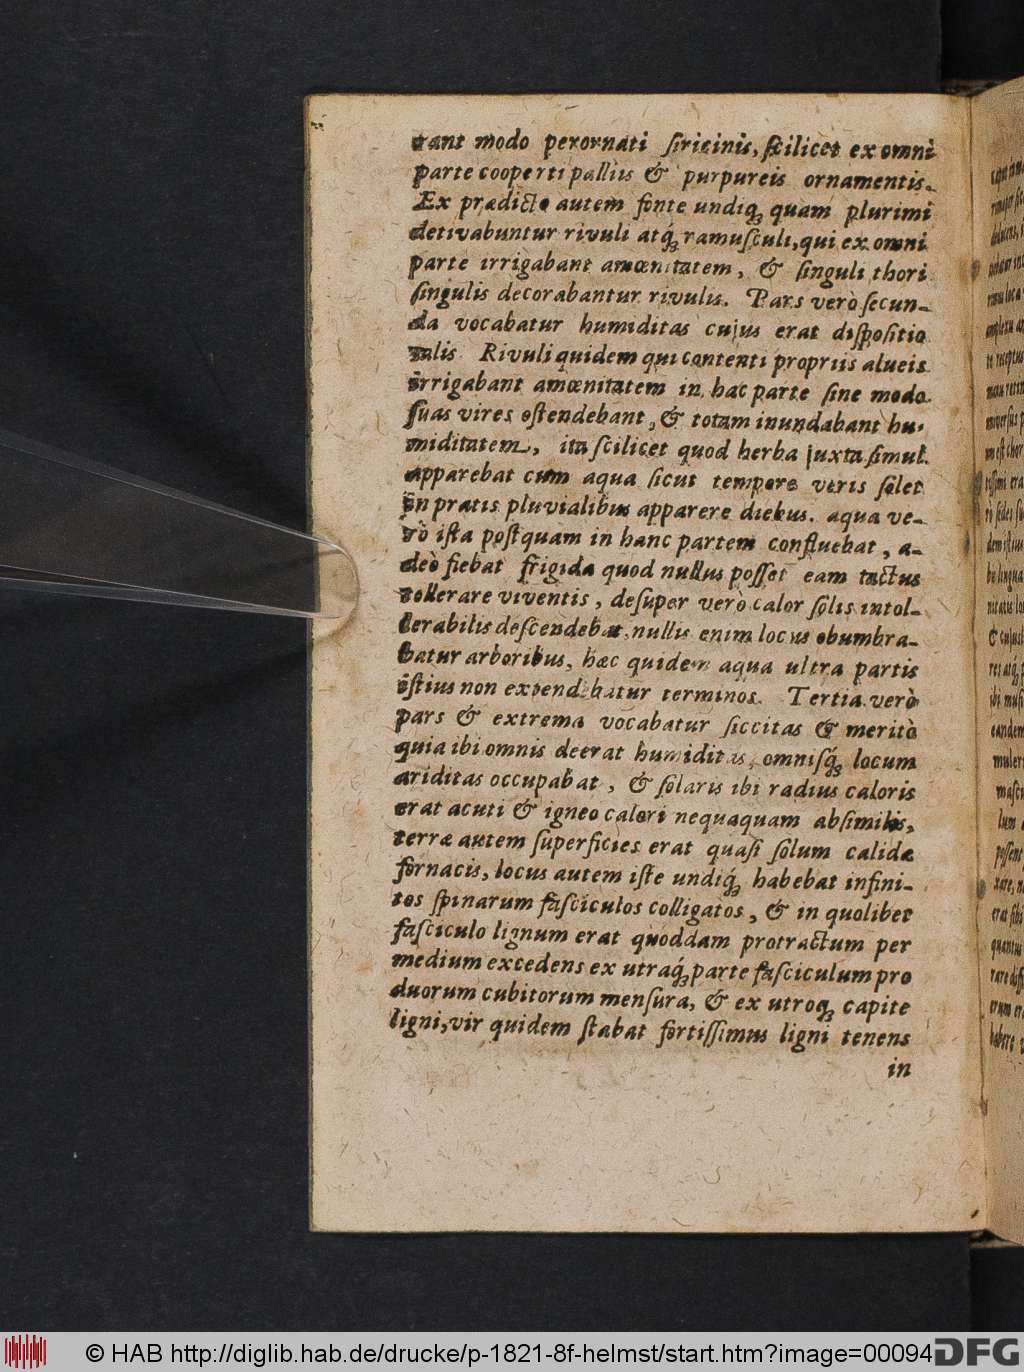 rant modo perornati siricinis, scilicet ex omni
parte cooperti palliis & purpureis ornamentis.
Ex prædicto autem fonte undiq; quam plurimi
derivabuntur rivuli atq; ramusculi, qui ex omni
parte irrigabant amœnitatem, & singuli thori
singulis decorabantur rivulis. Pars verò secun-
da vocabatur humiditas cujus erat dispositio
talis Rivuli quidem qui contenti propriis alueis
irrigabant amœnitatem in hac parte sine modo
suas vires ostendebant, & totam inundabant hu-
miditatem, ita scilicet quod herba juxta simul
apparebat cum aqua sicut tempore veris solet
in pratis pluvialibus apparere diebus. aqua ve-
rò ista postquam in hanc partem confluebat, a-
deò fiebat frigida quod nullus posset eam tactus
tollerare viventis, desuper verò calor solis intol-
lerabilis descendebat, nullis enim locus obumbra-
batur arboribus, hæc quidem aqua ultra partis
istius non extendebatur terminos. Tertia verò
pars & extrema vocabatur siccitas & meritò
quia ibi omnis deerat humiditas, omnisq; locum
ariditas occupabat, & solaris ibi radius caloris
erat acuti & igneo calori nequaquam absimilis,
terræ autem superficies erat quasi solum calidæ
fornacis, locus autem iste undiq; habebat infini-
tos spinarum fasciculos colligatos, & in quolibet
fasciculo lignum erat quoddam protractum per
medium excedens ex utraq; parte fasciculum pro
duorum cubitorum mensura, & ex utroq; capite
ligni, vir quidem stabat fortissimus ligni tenens
in
© HAB http://diglib.hab.de/drucke/p-1821-8f-helmst/start.htm?image=00094
DFG